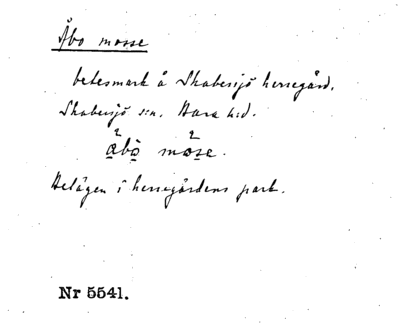 Åbo mosse
betesmark å Skabersjö herregård.
Skabersjö s:n. Bara h:d.
åbò mose.
Belägen i herregårdens park.
Nr 5541.